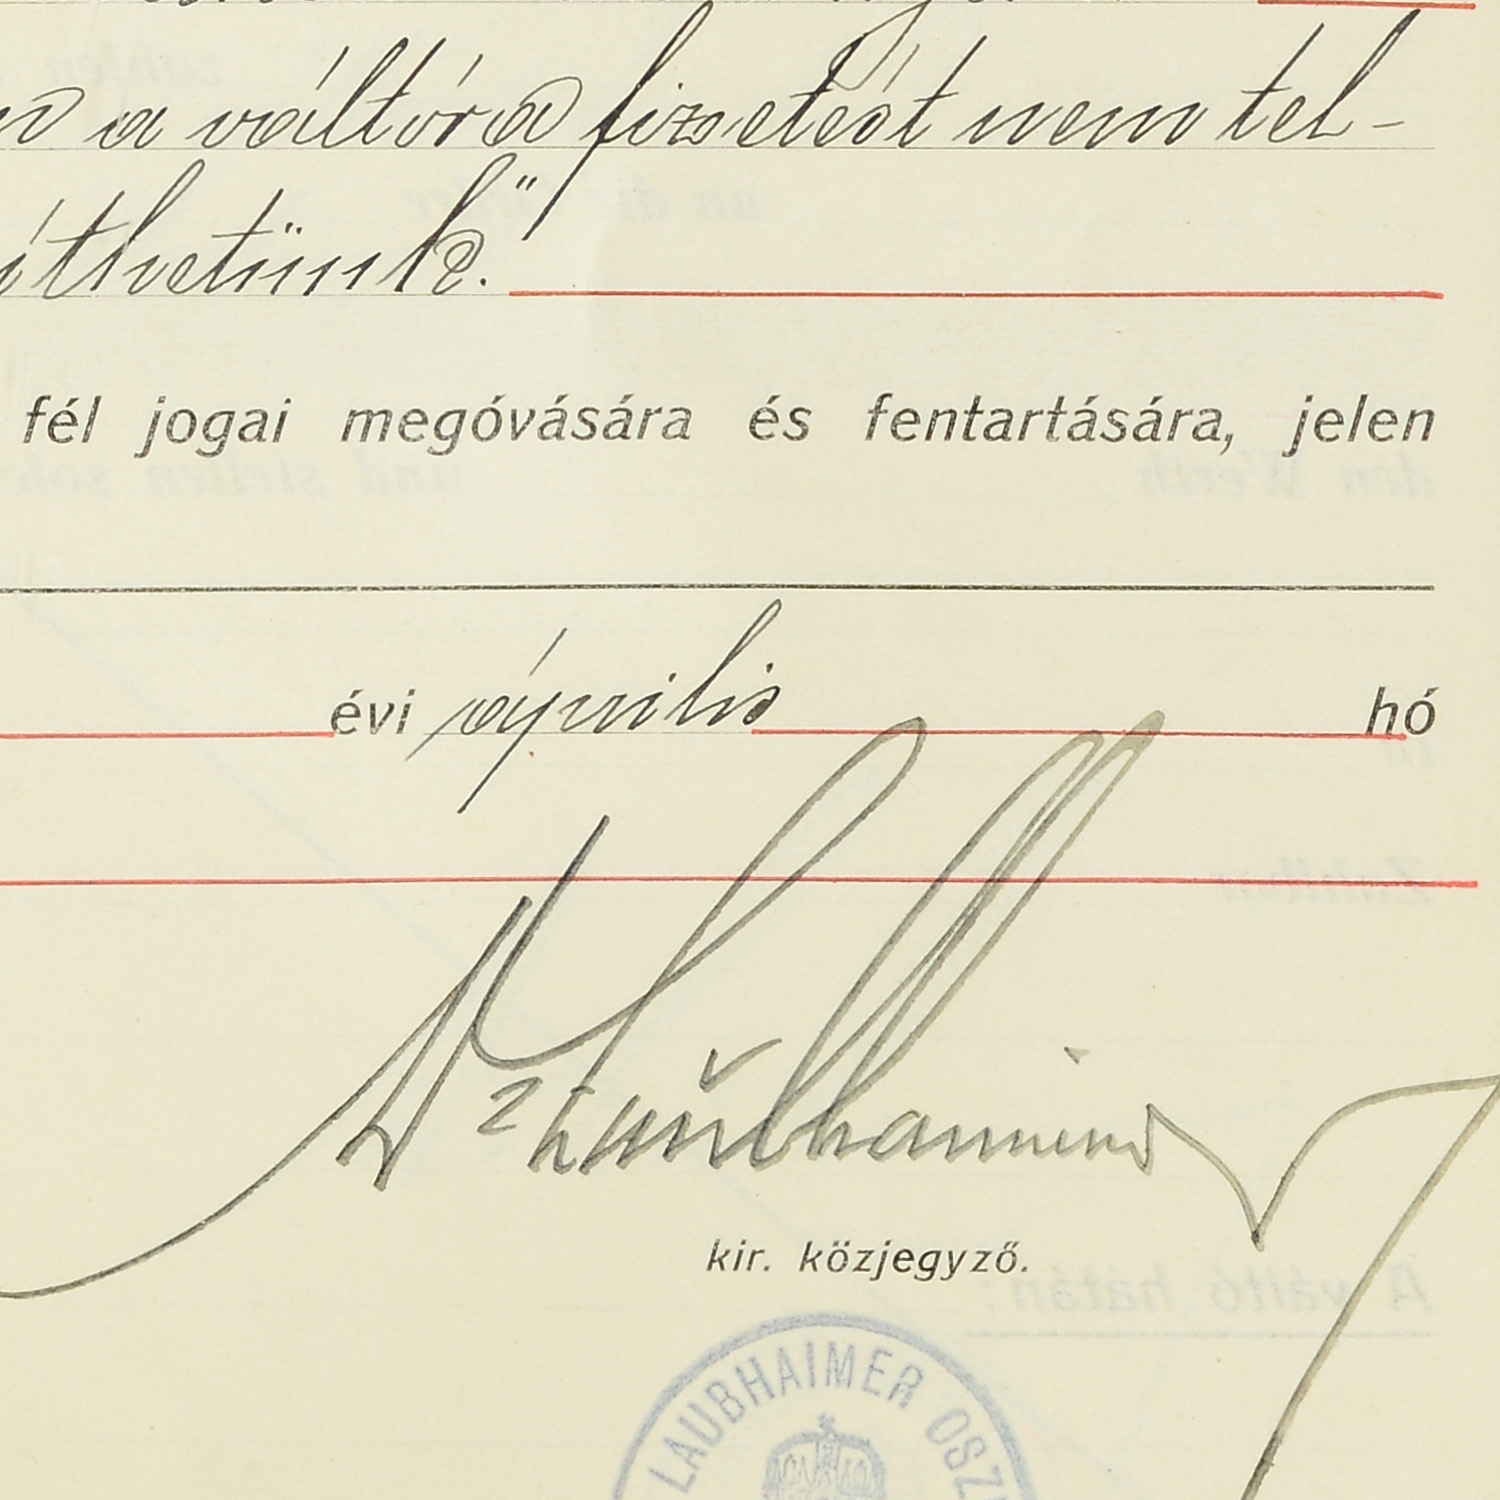 a váltóra fizetést nem tel-
íthetünk."
fél jogai megóvására és fentartására, jelen
évi április hó
Dr Laubhaimer
kir. közjegyző.
LAUBHAIMER OSZ